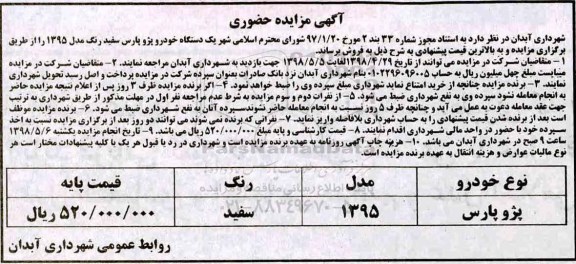 آگهی مزایده حضوری
شهرداری آبدان در نظر دارد به استناد مجوز شماره ۳۳ بند ۲ مورخ ۹۷/۱/۲۰ شورای محترم اسلامی شهر یک دستگاه خودرو پژو پارس سفید رنگ مدل ۱۳۹۵ را از طریق
برگزاری مزایده و به بالاترین قیمت پیشنهادی به شرح ذیل به فروش برساند.
۱- متقاضیان شرکت در مزایده می توانند از تاریخ ۱۳۹۸/۴/۲۹ لغایت ۱۳۹۸/۵/۵ جهت بازدید به شهرداری آبدان مراجعه نمایند. ۲- متقاضیان شرکت در مزایده
میبایست مبلغ چهل میلیون ریال به حساب ۰۱۰۲۲۹۶۰۹۶۰۰۵ بنام شهرداری آبدان نزد بانک صادرات بعنوان سپرده شرکت در مزایده پرداخت و اصل رسید تحویل شهرداری
نمایند. ۳- برنده مزایده چنانچه از خرید امتناع نماید شهرداری مبلغ سپرده وی را ضبط خواهد نمود. ۴- اگر برنده مزایده ظرف ۳ روز پس از اعلام نتیجه مزایده حاضر
به انجام معامله نشود سپرده وی به نفع شهرداری ضبط می شود. ۵- از نفرات دوم و سوم مزایده به شرط عدم مراجعه نفر اول در مهلت مذکور از طریق شهرداری به ترتیب
جهت عقد معامله دعوت به عمل می آید و چنانچه ظرف ۵ روز نسبت به انجام معامله حاضر نشوند سپرده آنان به نفع شهرداری ضبط می شود. ۶- برنده مزایده موظف
است بعد از برنده شدن قیمت پیشنهادی را به حساب شهرداری بلافاصله واریز نماید. ۷- نفراتی که برنده نمی شوند می توانند دو روز بعد از برگزاری مزایده نسبت به اخذ
سپرده خود با حضور در واحد مالی شهرداری اقدام نمایند. ۸- قیمت کارشناسی و پایه مبلغ ۵۲۰/۰۰۰/۰۰۰ ریال می باشد. ۹- تاریخ انجام مزایده یکشنبه ۱۳۹۸/۵/۶
ساعت ۹ صبح در شهرداری آبدان می باشد. ۱۰- هزینه چاپ آگهی روزنامه به عهده برنده مزایده است و شهرداری در رد یا قبول هر یک یا کلیه پیشنهادات مختار است هر
نوع مالیات عوارض و هزینه انتقال به عهده برنده مزایده است.
نوع خودرو مدل رنگ قیمت پایه
پژو پارس ۱۳۹۵ سفید ۵۲۰/۰۰۰/۰۰۰ ریال
روابط عمومی شهرداری آبدان